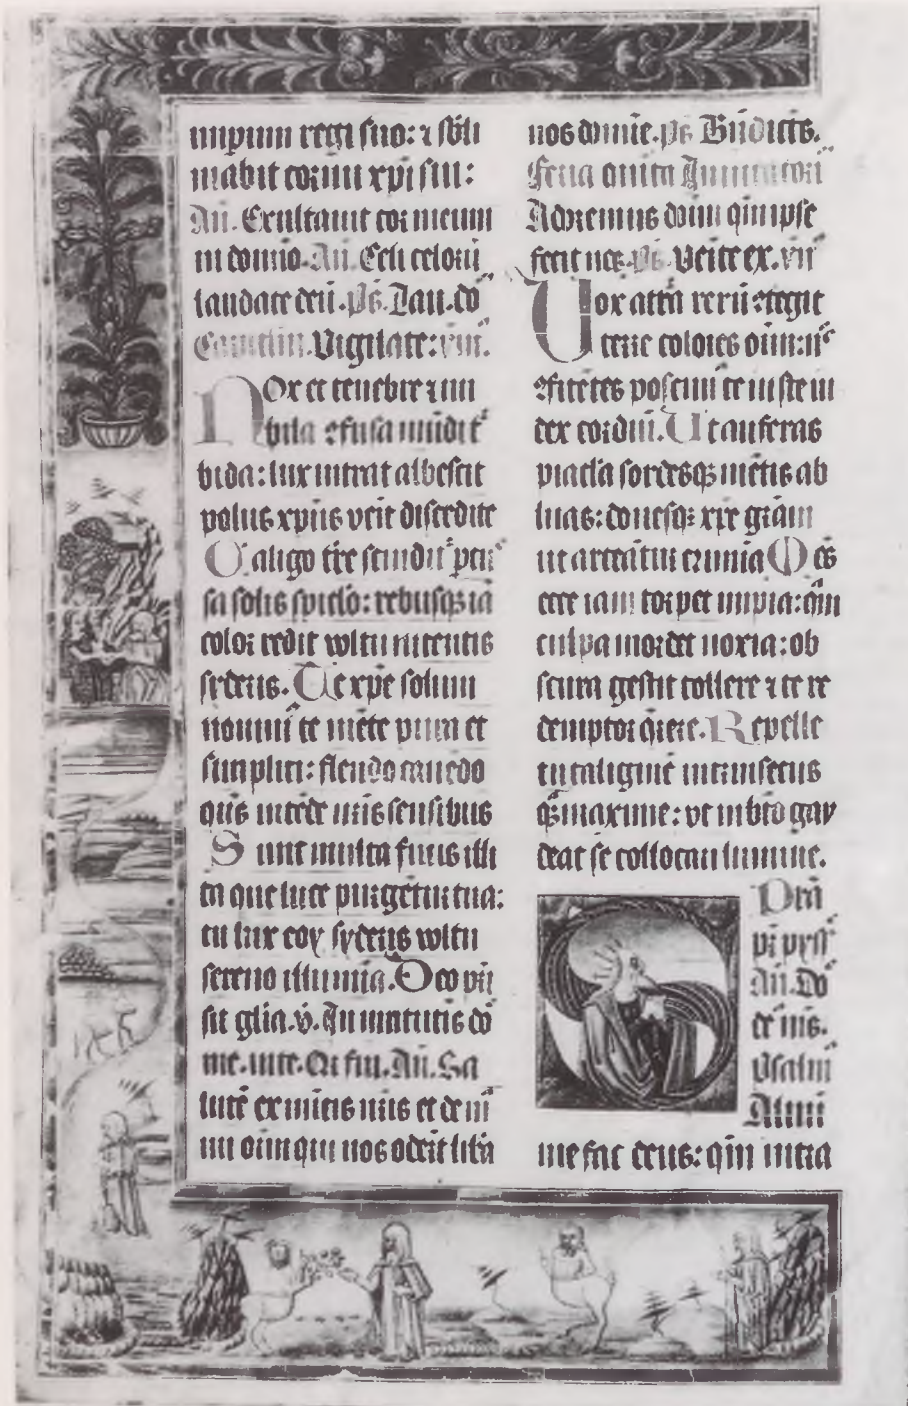 imperium regi suo: ⁊ subli
mabit cornu xpi sui:
An̄. Exultauit cor meum
in domino. An̄. Celi celorū
laudate deū. ps̄. Lau. do
Capitulm. Vigilate: viii.
Nox et tenebre ⁊ nu
bila ꝯfusa mūdi ⁊ t
bida: lux intrat albescit
polus xp̄us veit discedite
Caligo tr̄e scindit᷑ pcu
sa solis spiclo: rebusqꝫ iā
color redit voltu nitentis
syderis. Te xp̄e solum
nouim᷒ te mēte pura et
simplici: flendo canēdo
qūs intēde nr̄is sensibus
Sunt multa fucis illi
ta que luce purgētur tua:
tu lux eoy syderis voltu
sereno illumina. Deo pr̄i
sit glīa. v̄. In matutis do
me. inte. Qi fui. An̄. Sa
lutē ex inīcis nr̄is et de m̄
nu oīm qui nos odert̄ libā
nos domīe. ps̄ Bn̄dictꝰ.
Feria quīta Inuitatorī
Adoremus dn̄m qm̄ ipse
fecit nos. ps̄. Veite ex. viī
Nox atrā rerū ꝯtegit
terre colores oīm: n᷒
ꝯfitētes poscim᷒ te iuste iu
dex cordiū. Ut auferas
piacl̄a sordesqꝫ mētis ab
luas: donesqꝫ xp̄e gr̄am
ut arceātur crimīa Mēs
ecce iam torpet impia: qm̄
culpa mordet noxia: ob
scura gestit tollere ⁊ te re
demptor q̄rere. Repelle
tu caliginē intrinsecus
qm̄ maxime: vt in bt̄o gau
deat se collocari lumine.
Sup̄
pꝫ pyss̄
An̄. Do
de nīs.
Psalm
Aluū
me fac deus: qm̄ intra